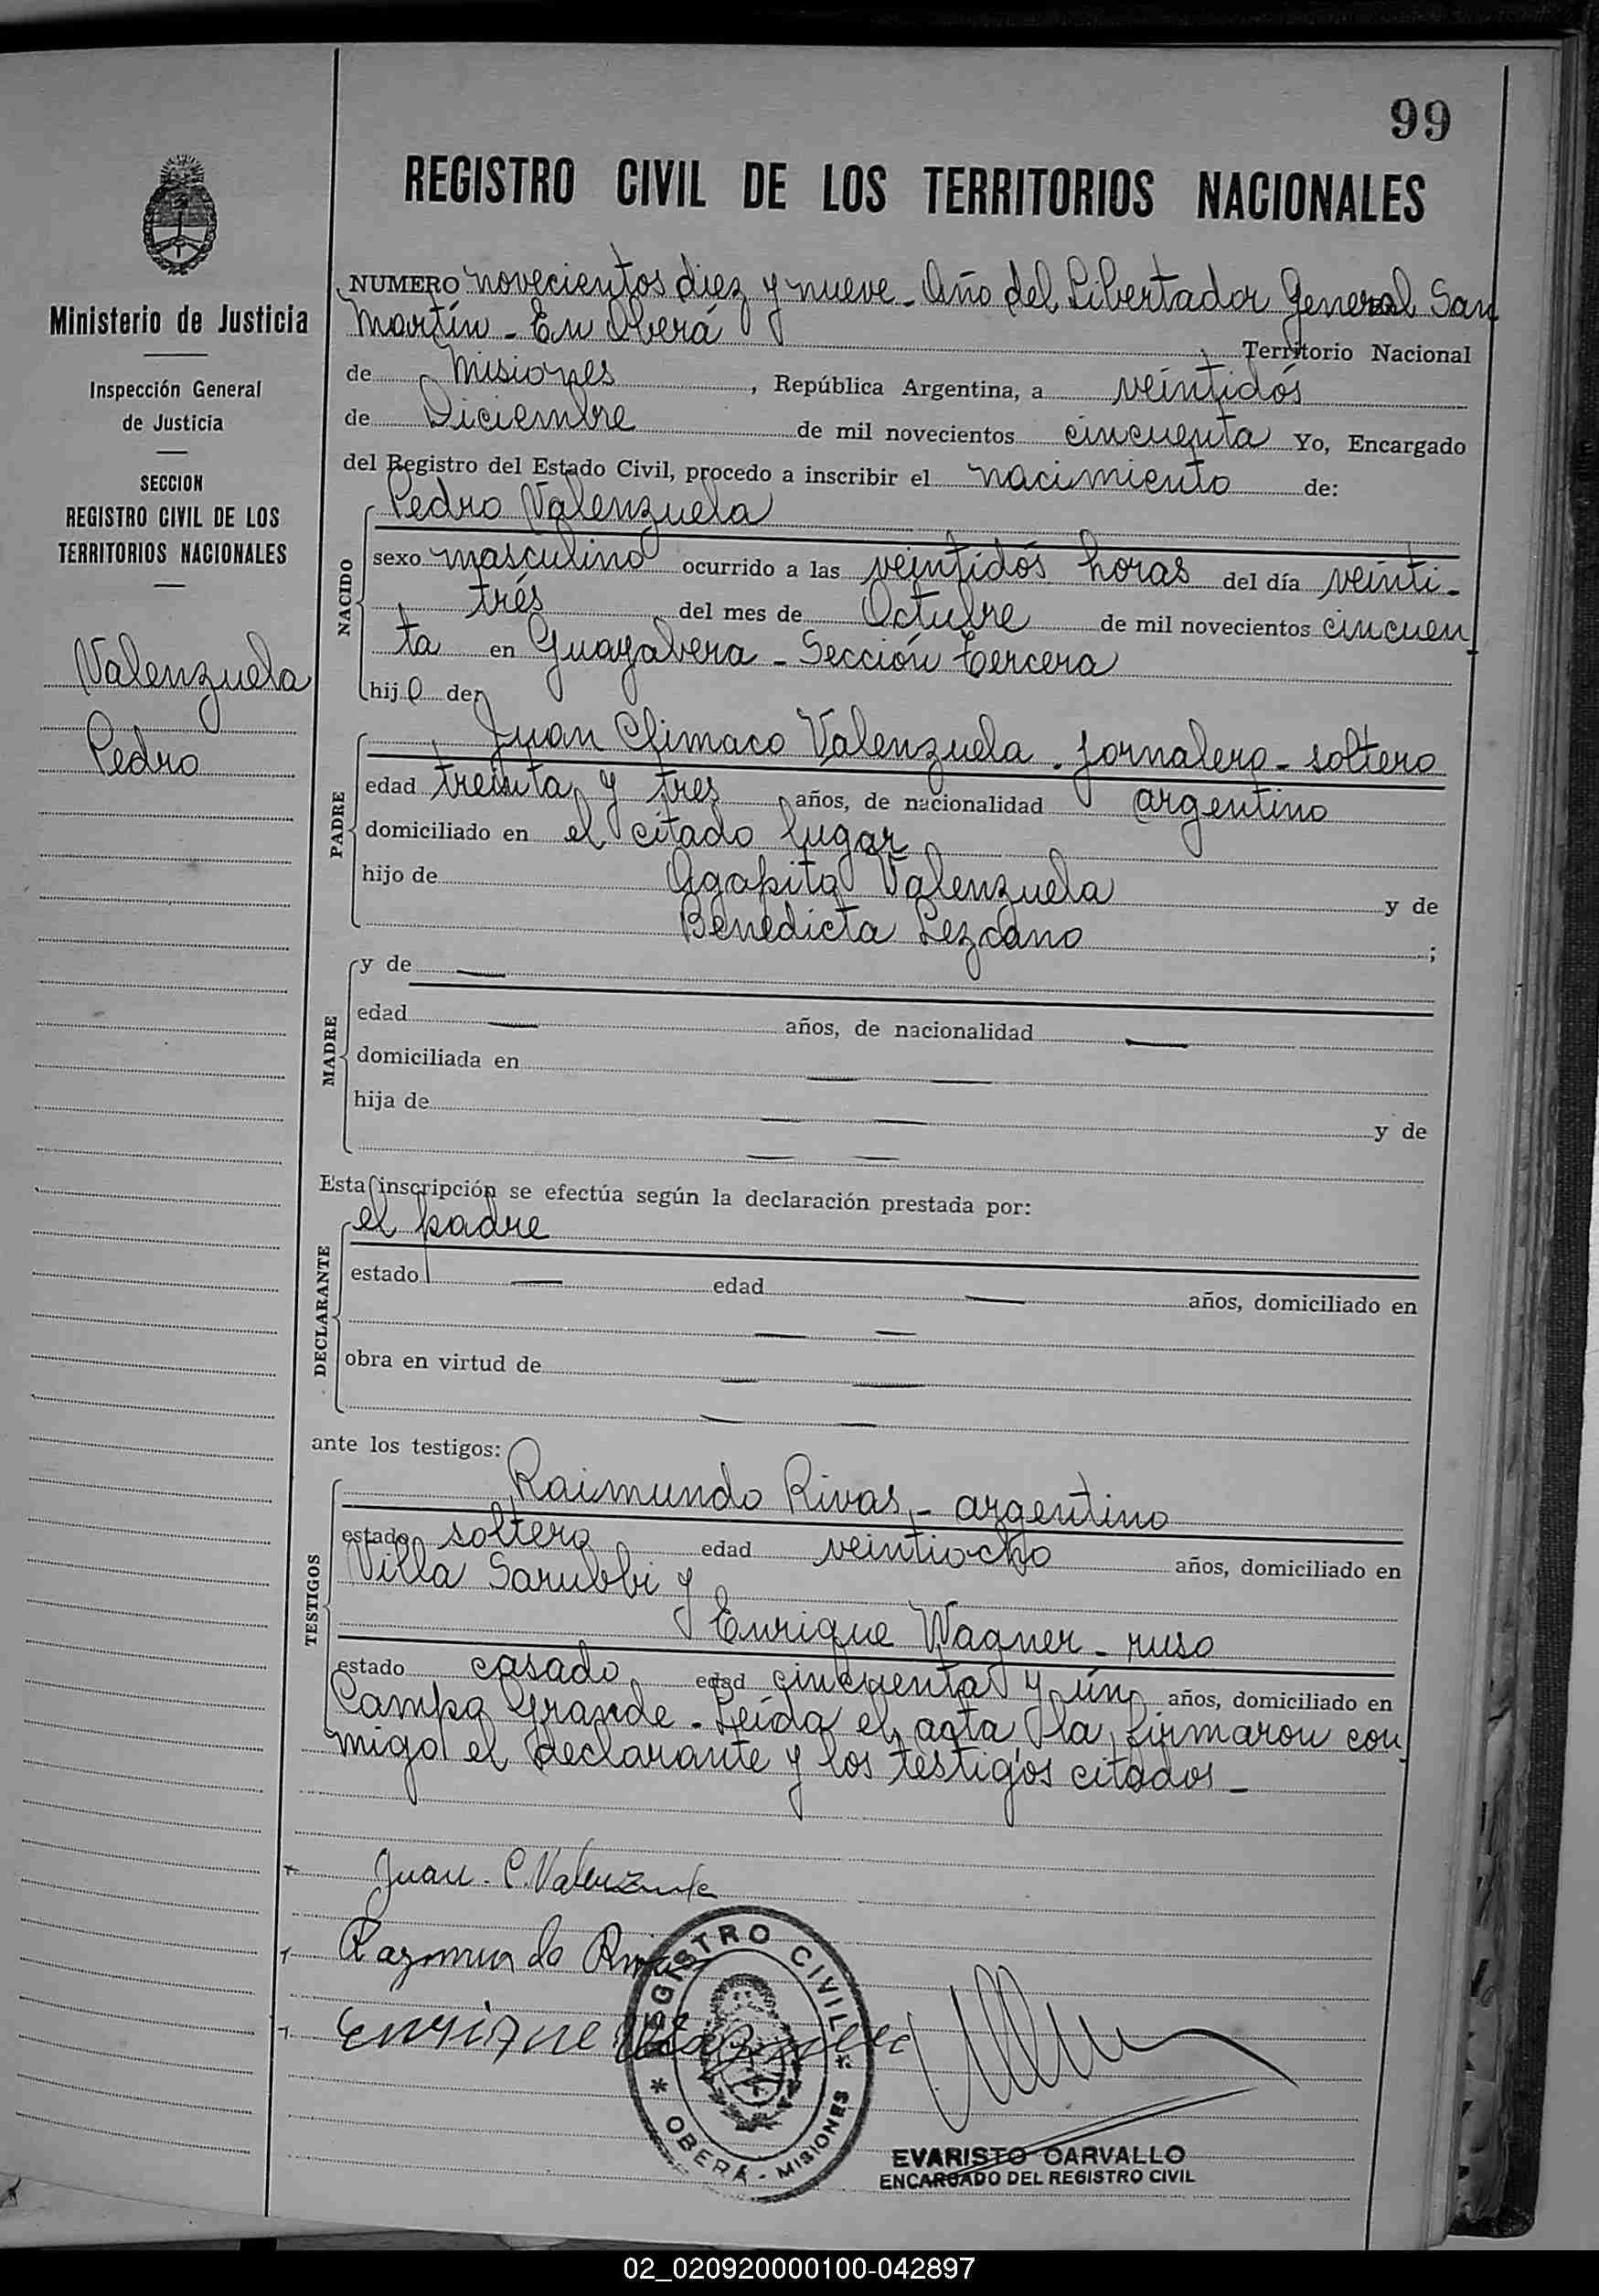 99
REGISTRO CIVIL DE LOS TERRITORIOS NACIONALES
Ministerio de Justicia
Inspección General
de Justicia
SECCION
REGISTRO CIVIL DE LOS
TERRITORIOS NACIONALES
Valenzuela
Pedro
NUMERO novecientos diez y nueve - Año del Libertador General San
Martín - En Oberá Territorio Nacional
de Misiones, República Argentina, a veintidós
de Diciembre de mil novecientos cincuenta Yo, Encargado
del Registro del Estado Civil, procedo a inscribir el nacimiento de:
NACIDO
Pedro Valenzuela
sexo masculino ocurrido a las veintidós horas del día veinti-
trés del mes de Octubre de mil novecientos cincuen-
ta en Guayabera - Sección tercera
hijo de
PADRE
Juan Climaco Valenzuela - jornalero - soltero
edad treinta y tres años, de nacionalidad argentino
domiciliado en el citado lugar
hijo de Agapito Valenzuela y de
Benedicta Lezcano ;
MADRE
y de —
edad — años, de nacionalidad —
domiciliada en — —
hija de — — y de
— —
Esta inscripción se efectúa según la declaración prestada por:
DECLARANTE
el padre
estado — edad — años, domiciliado en
— —
obra en virtud de — —
— —
ante los testigos:
TESTIGOS
Raimundo Rivas - argentino
estado soltero edad veintiocho años, domiciliado en
Villa Sarubbi y
Enrique Wagner - ruso
estado casado edad cincuenta y un años, domiciliado en
Campo Grande - Leída el acta la firmaron con-
migo el declarante y los testigos citados -
Juan C. Valenzuela
Raymundo Rivas
Enrique Wagner
REGISTRO CIVIL
* OBERÁ - MISIONES *
EVARISTO CARVALLO
ENCARGADO DEL REGISTRO CIVIL
02_020920000100-042897